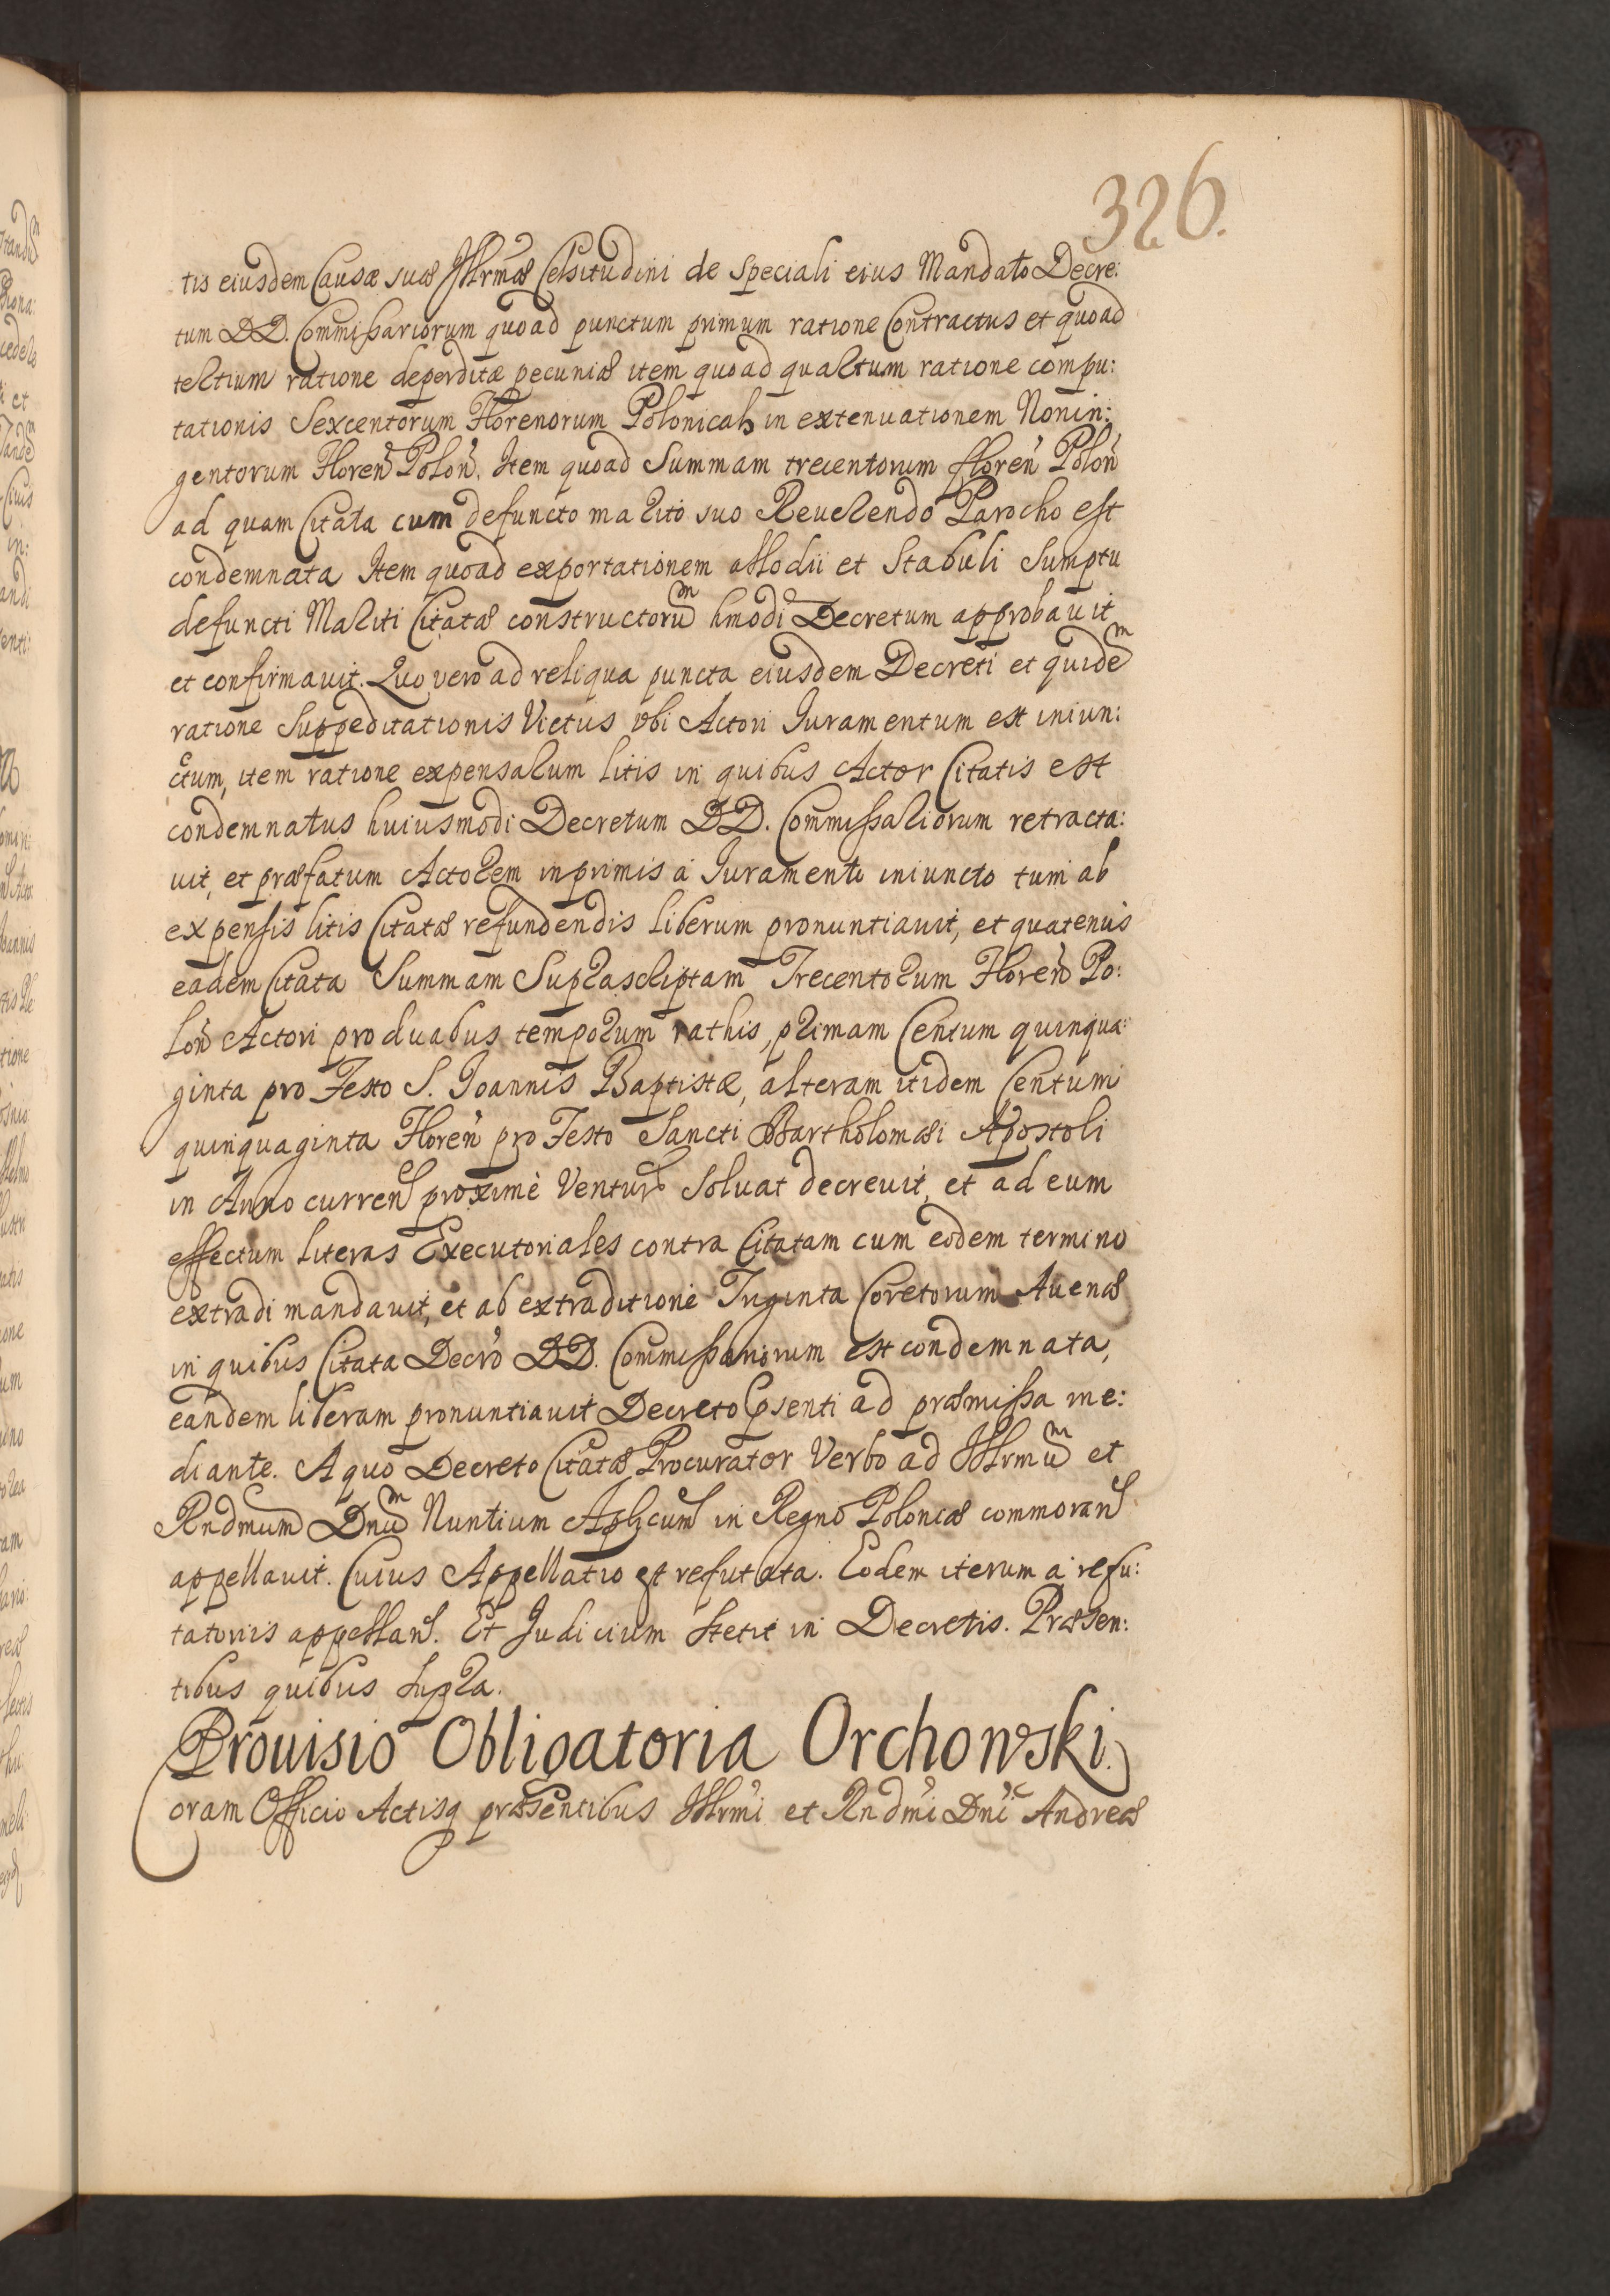 326.
tis eiusdem Causæ suæ Illrmæ Celsitudini de speciali eius Mandato Decre:
tum DD. Commissariorum quoad punctum primum ratione Contractus et quoad
tertium ratione deperditæ pecuniæ item quoad quartum ratione compu:
tationis Sexcentorum Florenorum Polonical in extenuationem Nonin:
gentorum Floren Polon. Item quoad Summam trecentorum floren Polon
ad quam Citata cum defuncto marito suo Reuerendo Parocho est
condemnata Item quoad exportationem allodii et Stabuli Sumptu
defuncti Mariti Citatæ constructorum hmodi Decretum approbauit
et confirmauit. Quo vero ad reliqua puncta eiusdem Decreti et quidem
ratione Suppeditationis Victus vbi Actori Iuramentum est iniun:
ctum, item ratione expensarum litis in quibus Actor Citatis est
condemnatus huiusmodi Decretum DD. Commissariorum retracta:
uit, et præfatum Actorem inprimis a Iuramento iniuncto tum ab
expensis litis Citatæ refundendis liberum pronuntiauit, et quatenus
eadem Citata Summam Suprascriptam Trecentorum Floren Po:
lon Actori pro duabus temporum rathis, primam Centum quinqua:
ginta pro Festo S. Joannis Baptistæ, alteram itidem Centum
quinquaginta Floren pro Festo Sancti Bartholomæi Apostoli
in Anno curren proxime Ventur Soluat decreuit, et ad eum
effectum literas Executoriales contra Citatam cum eodem termino
extradi mandauit, et ab extraditione Triginta Coretorum Auenæ
in quibus Citata Decro DD. Commissariorum est condemnata,
eandem liberam pronuntiauit Decreto psenti ad præmissa me:
diante. A quo Decreto Citatæ Procurator Verbo ad Illrmum et
Rndmum Dnum Nuntium Aplicum in Regno Poloniæ commoran
appellauit. Cuius Appellatio est refutata. Eodem iterum a refu:
tatoriis appellan. Et Judicium stetit in Decretis. Præsen:
tibus quibus supra.
Prouisio Obligatoria Orchowski.
Coram Officio Actisq præsentibus Illrmi et Rndmi Dni Andreæ